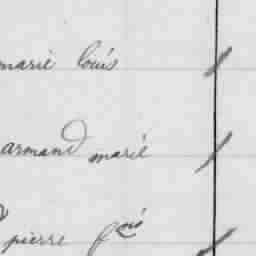 marie louis
armand marie
pierre fçois